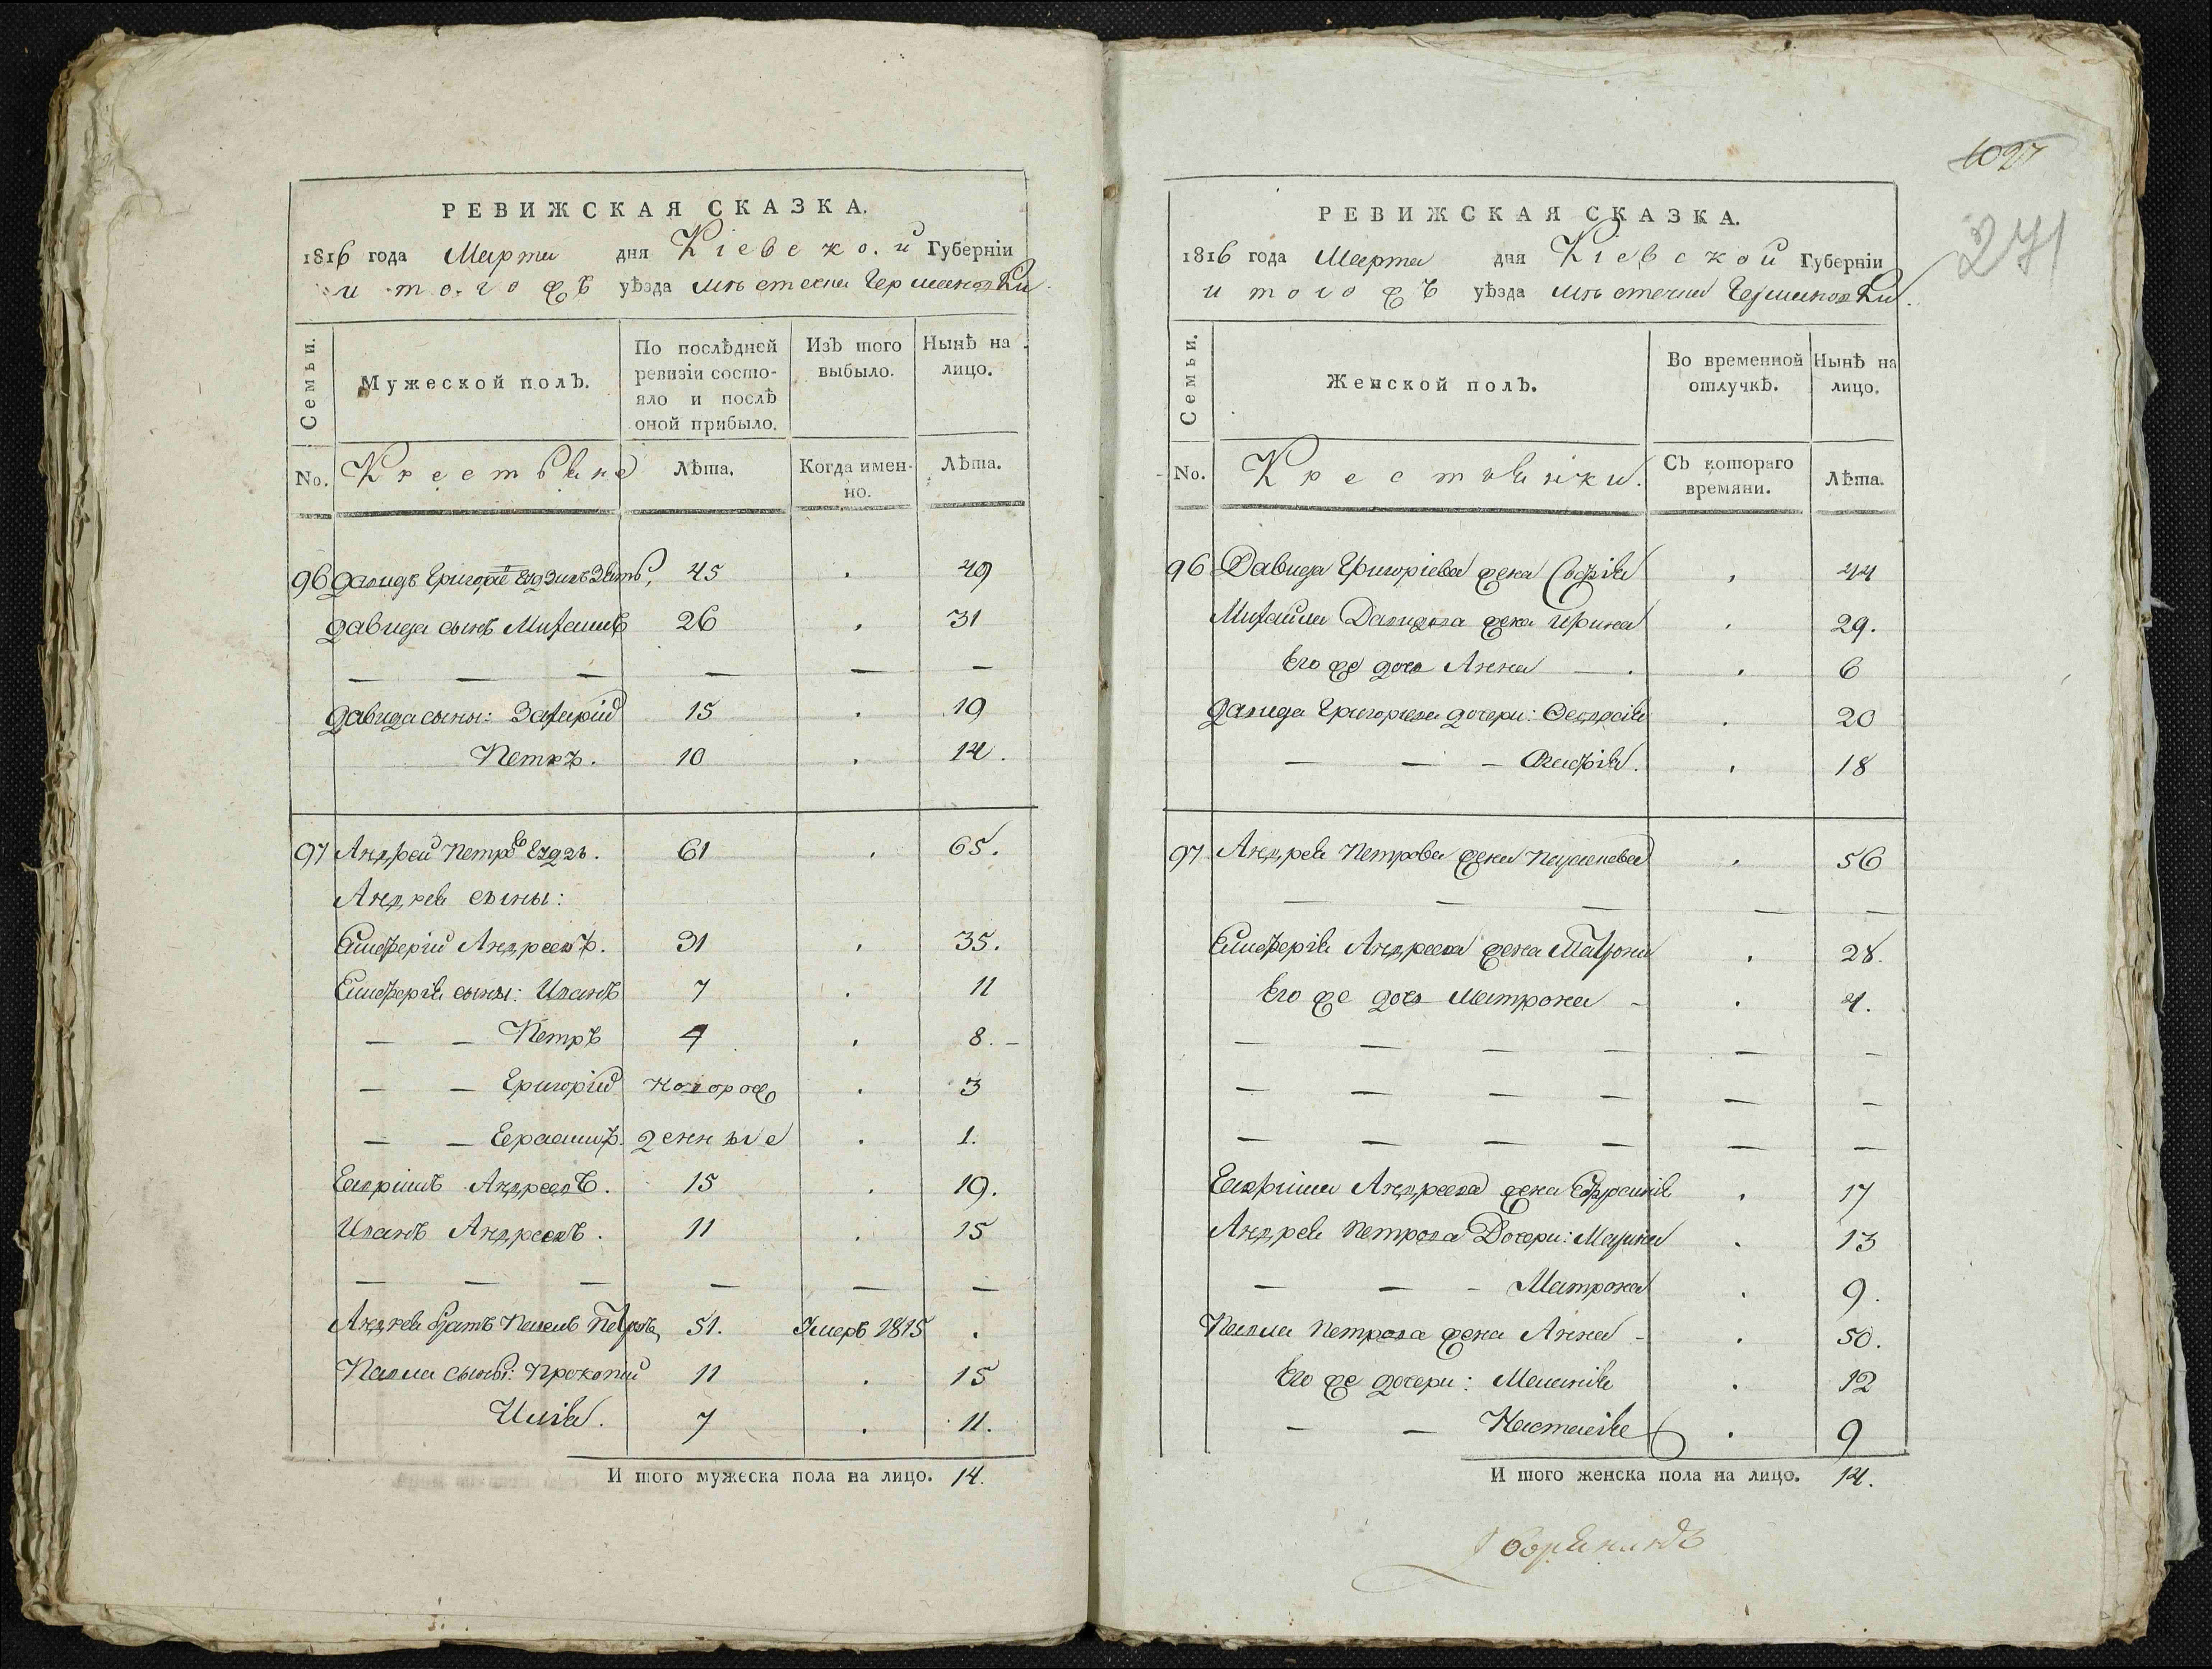 РЕВИЖСКАЯ СКАЗКА.
1816 года Марта дня Кіевской Губерніи
и того жъ уѣзда мѣстечка Германовки
Семьи.
Мужеской полъ.
По послѣдней ревизіи состояло и послѣ оной прибыло.
Изъ того выбыло.
Нынѣ на лицо.
No. Крестьяне Лѣта. Когда именно. Лѣта.
96 Давидъ Григоріе 45 . 49
Давида сынъ Михаилъ 26 . 31
— — — — — —
Давида сыны: Захарій 15 . 19
Петръ. 10 . 14.
97 Андрей Петровъ 61 . 65.
Андрея сыны:
Елиѳерій Андреевъ. 31 . 35.
Елиѳерія сыны: Иванъ 7 . 11
— — Петръ 4 . 8. —
— — Григорій новорож . 3
— — Герасимъ. денные . 1.
Гавріилъ Андреевъ. 15 . 19.
Иванъ Андреевъ. 11 . 15
— — — — — —
Андрея братъ Павелъ Петровъ 51. Умеръ 1815 .
Павла сыны: Прокопій 11 . 15
Илія. 7 . 11.
И того мужеска пола на лицо. 14.
1027
271
РЕВИЖСКАЯ СКАЗКА.
1816 года Марта дня Кіевской Губерніи
и того жъ уѣзда мѣстечка Германовки.
Семьи.
Женской полъ.
Во временной отлучкѣ.
Нынѣ на лицо.
No. Крестьянки. Съ котораго времяни. Лѣта.
96 Давида Григоріева жена Софія . 44
Михайла Давидова жена Ирина . 29.
Его же дочь Анна — . . 6
Давида Григорьева дочери: Ѳеодосія . 20
— — — Агафія. . 18
97 Андрея Петрова жена . 56
— — — — —
Елиѳерія Андреева жена Матрона . 28.
Его же дочь Матрона — . 4.
— — — — — —
— — — — — —
— — — — — —
Гавріила Андреева жена Ефросинія . 17
Андрея Петрова Дочери: Марина . 13
— — — Матрона . 9.
Павла Петрова жена Анна — . 50.
Его же дочери: Меланія . 12
— — Настасія . 9
И того женска пола на лицо. 14.